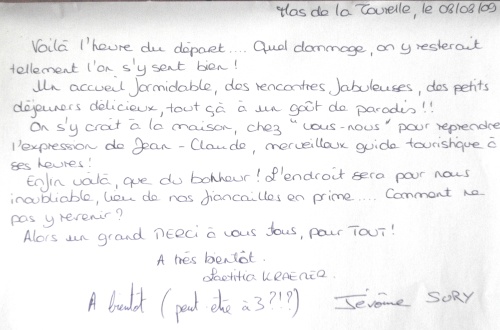 Mas de la Tourelle, le 08/08/09
Voilà l'heure du départ.... Quel dommage, on y resterait
tellement l'on s'y sent bien !
Un accueil formidable, des rencontres fabuleuses, des petits
déjeuners délicieux, tout çà à un goût de paradis !!
On s'y croit à la maison, chez "vous-nous" pour reprendre
l'expression de Jean-Claude, merveilleux guide touristique à
ses heures !
Enfin voilà, que du bonheur ! L'endroit sera pour nous
inoubliable, lieu de nos fiancailles en prime.... Comment ne
pas y revenir ?
Alors un grand MERCI à vous tous, pour TOUT !
A très bientôt.
Laetitia
A bientôt (peut être à 3 ?!?) Jérôme SURY